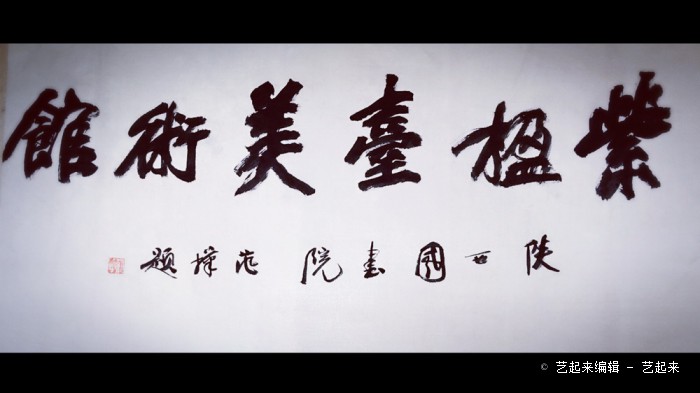 紫楹臺美術館
陕西國畫院 题
© 艺起来编辑 - 艺起来